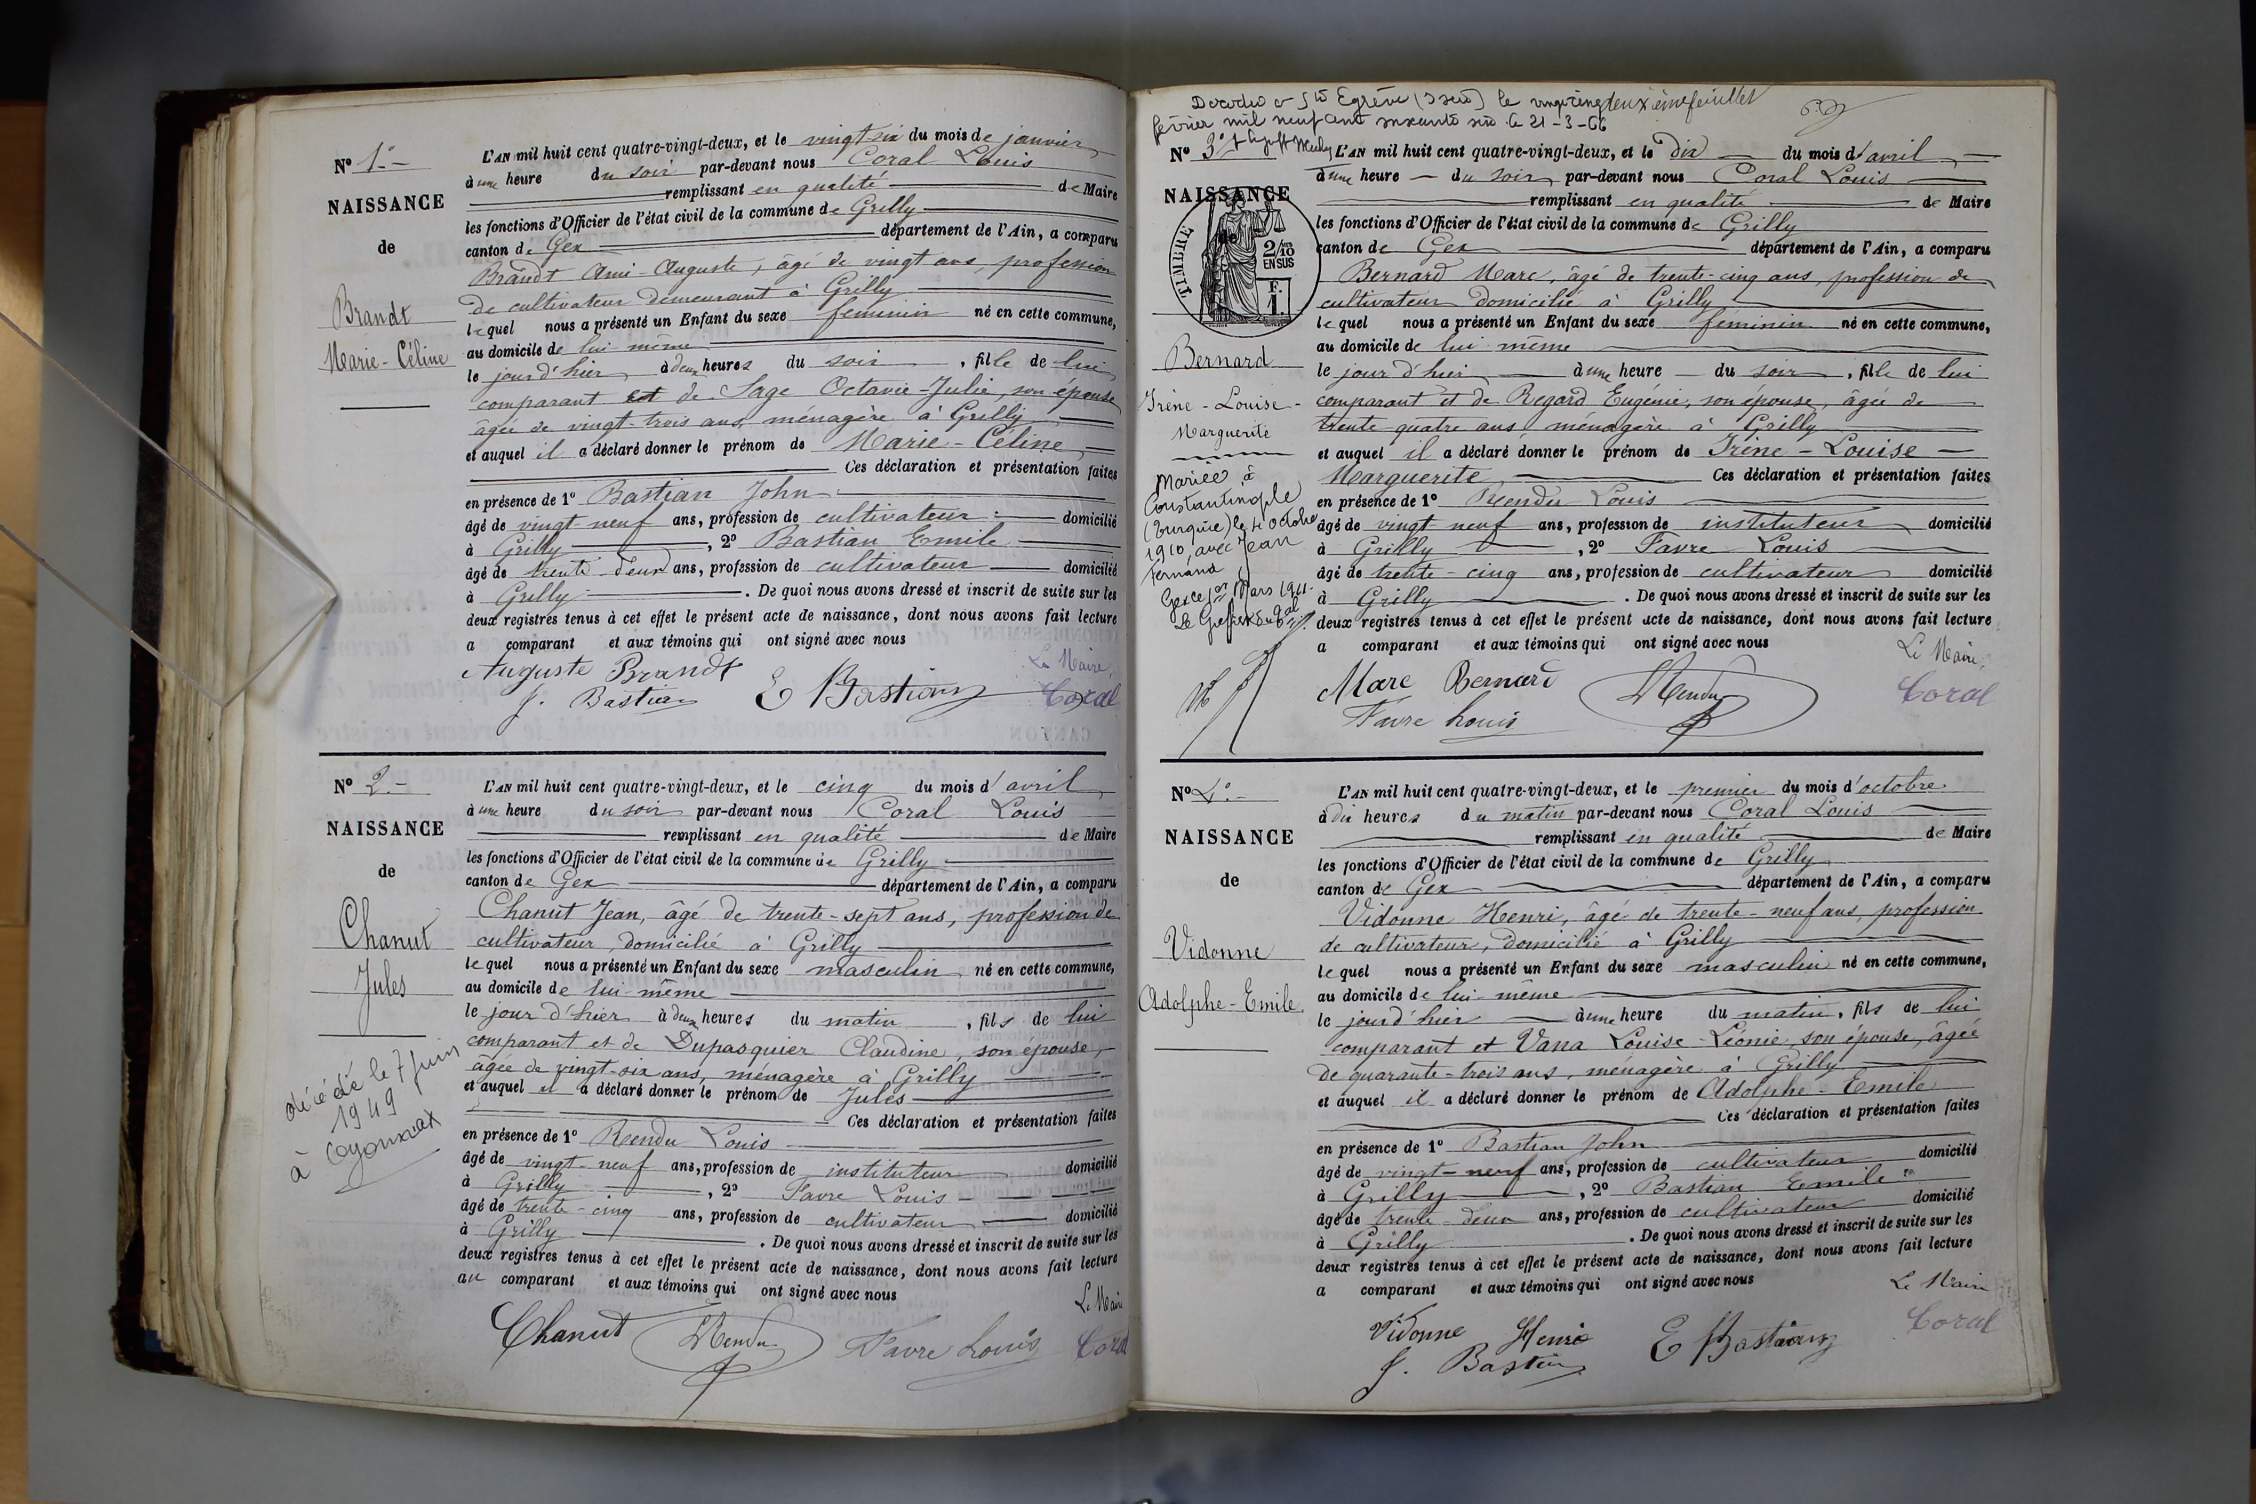 N° 1.-
NAISSANCE
de
Brandt
Marie-Céline
L'AN mil huit cent quatre-vingt-deux, et le vingt six du mois de janvier
à une heure du soir par-devant nous Coral Louis
remplissant en qualité de Maire
les fonctions d'Officier de l'état civil de la commune de Grilly
canton de Gex département de l'Ain, a comparu
Brandt Ami-Auguste, âgé de vingt ans, profession
de cultivateur demeurant à Grilly
lequel nous a présenté un Enfant du sexe féminin né en cette commune,
au domicile de lui même
le jour d'hier à deux heures du soir, fille de lui
comparant et de Sage Octavie-Julie, son épouse
âgée de vingt-trois ans, ménagère à Grilly
et auquel il a déclaré donner le prénom de Marie-Céline
Ces déclaration et présentation faites
en présence de 1° Bastian John
âgé de vingt-neuf ans, profession de cultivateur domicilié
à Grilly, 2° Bastian Emile
âgé de trente-deux ans, profession de cultivateur domicilié
à Grilly. De quoi nous avons dressé et inscrit de suite sur les
deux registres tenus à cet effet le présent acte de naissance, dont nous avons fait lecture
a comparant et aux témoins qui ont signé avec nous
Le Maire,
Auguste Brandt
J. Bastian E Bastian Coral
N° 2.-
NAISSANCE
de
Chanut
Jules
décédé le 7 juin
1949
à Oyonnax
L'AN mil huit cent quatre-vingt-deux, et le cinq du mois d'avril
à une heure du soir par-devant nous Coral Louis
remplissant en qualité de Maire
les fonctions d'Officier de l'état civil de la commune de Grilly
canton de Gex département de l'Ain, a comparu
Chanut Jean, âgé de trente-sept ans, profession de
cultivateur, domicilié à Grilly
lequel nous a présenté un Enfant du sexe masculin né en cette commune,
au domicile de lui-même
le jour d'hier à deux heures du matin, fils de lui
comparant et de Dupasquier Claudine, son épouse,
âgée de vingt-six ans, ménagère à Grilly
et auquel il a déclaré donner le prénom de Jules
Ces déclaration et présentation faites
en présence de 1° Rendu Louis
âgé de vingt-neuf ans, profession de instituteur domicilié
à Grilly, 2° Favre Louis
âgé de trente-cinq ans, profession de cultivateur domicilié
à Grilly. De quoi nous avons dressé et inscrit de suite sur les
deux registres tenus à cet effet le présent acte de naissance, dont nous avons fait lecture
au comparant et aux témoins qui ont signé avec nous
Le Maire
Chanut LRendu Favre Louis Coral
Décédée à St Egrève (Isère) le vingt
février mil neuf cent soixante six le 21-3-66
N° 3°
NAISSANCE
de
TIMBRE
2/10
EN SUS
F.
1.
Bernard
Irène-Louise-
Marguerite
Mariée à
Constantinople
(Turquie) le 4 octobre
1910, avec Jean
Fernand
Gex ce 1er Mars 1911.
Le Greffier
L'AN mil huit cent quatre-vingt-deux, et le dix du mois d'avril
à une heure du soir par-devant nous Coral Louis
remplissant en qualité de Maire
les fonctions d'Officier de l'état civil de la commune de Grilly
canton de Gex département de l'Ain, a comparu
Bernard Marc, âgé de trente-cinq ans, profession de
cultivateur domicilié à Grilly
lequel nous a présenté un Enfant du sexe féminin né en cette commune,
au domicile de lui même
le jour d'hier à une heure du soir, fille de lui
comparant et de Regard Eugénie, son épouse, âgée de
trente quatre ans ménagère à Grilly
et auquel il a déclaré donner le prénom de Irène-Louise-
Marguerite Ces déclaration et présentation faites
en présence de 1° Rendu Louis
âgé de vingt-neuf ans, profession de instituteur domicilié
à Grilly, 2° Favre Louis
âgé de trente-cinq ans, profession de cultivateur domicilié
à Grilly. De quoi nous avons dressé et inscrit de suite sur les
deux registres tenus à cet effet le présent acte de naissance, dont nous avons fait lecture
a comparant et aux témoins qui ont signé avec nous
Le Maire,
Marc Bernard LRendu Coral
Favre Louis
N° 4°.-
NAISSANCE
de
Vidonne
Adolphe-Emile
L'AN mil huit cent quatre-vingt-deux, et le premier du mois d'octobre
à dix heures du matin par-devant nous Coral Louis
remplissant en qualité de Maire
les fonctions d'Officier de l'état civil de la commune de Grilly
canton de Gex département de l'Ain, a comparu
Vidonne Henri, âgé de trente-neuf ans, profession
de cultivateur, domicilié à Grilly
lequel nous a présenté un Enfant du sexe masculin né en cette commune,
au domicile de lui-même
le jour d'hier à une heure du matin, fils de lui
comparant et Vana Louise-Léonie, son épouse, âgée
de quarante-trois ans, ménagère à Grilly
et auquel il a déclaré donner le prénom de Adolphe-Emile
Ces déclaration et présentation faites
en présence de 1° Bastian John
âgé de vingt-neuf ans, profession de cultivateur domicilié
à Grilly, 2° Bastian Emile
âgé de trente-deux ans, profession de cultivateur domicilié
à Grilly. De quoi nous avons dressé et inscrit de suite sur les
deux registres tenus à cet effet le présent acte de naissance, dont nous avons fait lecture
a comparant et aux témoins qui ont signé avec nous
Le Maire
Vidonne Henri E Bastian Coral
J. Bastian